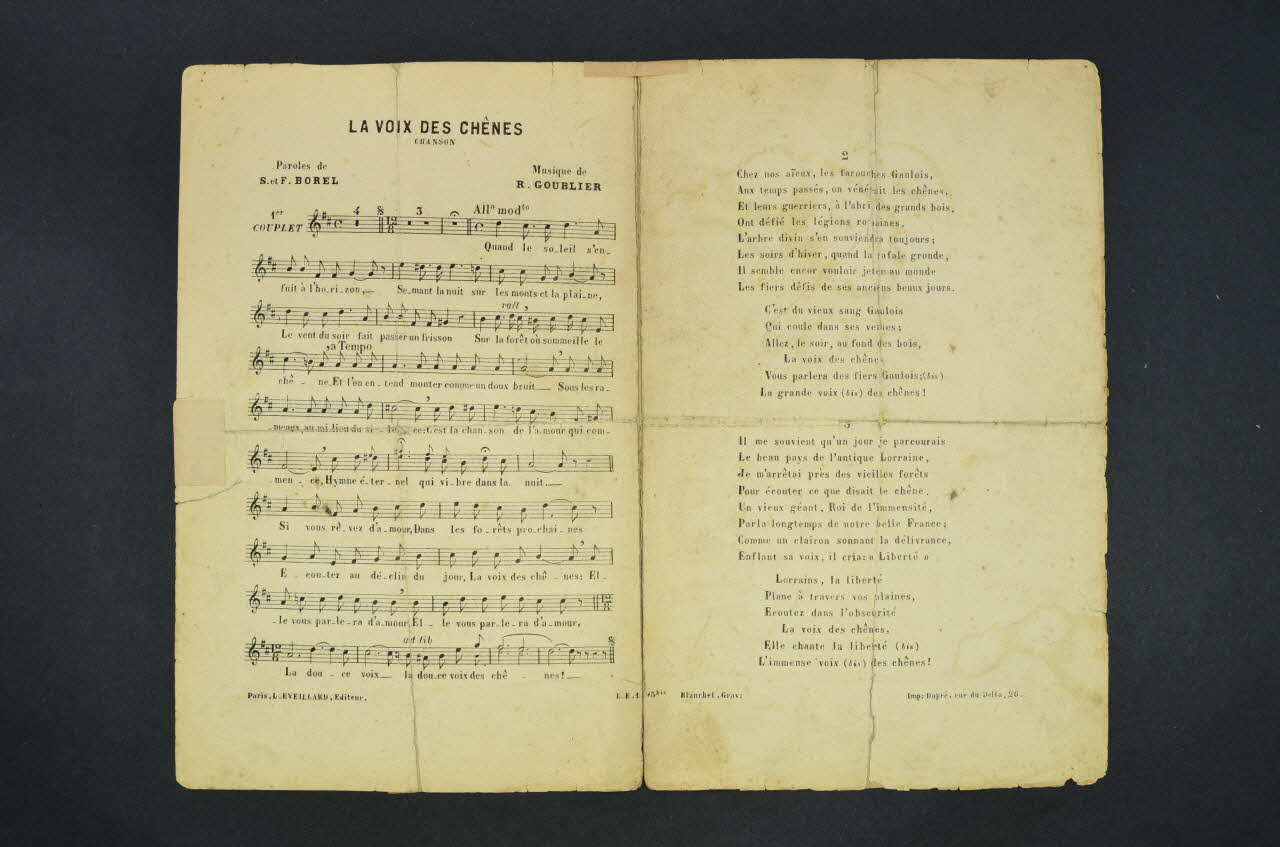 LA VOIX DES CHÊNES
CHANSON
Paroles de
S. et F. BOREL
Musique de
R. GOUBLIER
1er
COUPLET
4
3
Allº modto
Quand le so_leil s'en_
fuit à l'ho_ri_zon,_ Se_mant la nuit sur les monts et la plai_ne,
rall
Le vent du soir fait passer un frisson Sur la forêt où sommeille le
a Tempo
chê _ ne, Et l'on en_tend monter comme un doux bruit_ Sous les ra_
_meaux, au mi_lieu du si_len_ce: C'est la chan_son de l'a_mour qui com_
_men_ce, Hymne é_ter_nel qui vi_bre dans la nuit_
Si vous rê_vez d'a_mour, Dans les fo_rêts pro_chai_nes
E_cou_tez au dé_clin du jour, La voix des chê_nes: El_
_le vous par_le_ra d'amour, El_le vous par_le_ra d'a_mour,
ad lib
La dou_ce voix_ la dou_ce voix des chê_nes!_
Paris, L. EVEILLARD, Editeur.
2
Chez nos aïeux, les farouches Gaulois,
Aux temps passés, on vénérait les chênes,
Et leurs guerriers, à l'abri des grands bois,
Ont défié les légions romaines.
L'arbre divin s'en souviendra toujours;
Les soirs d'hiver, quand la rafale gronde,
Il semble encor vouloir jeter au monde
Les fiers défis de ses anciens beaux jours.
C'est du vieux sang Gaulois
Qui coule dans ses veines;
Allez, le soir, au fond des bois,
La voix des chênes
Vous parlera des fiers Gaulois; (bis)
La grande voix (bis) des chênes!
3
Il me souvient qu'un jour je parcourais
Le beau pays de l'antique Lorraine,
Je m'arrêtai près des vieilles forêts
Pour écouter ce que disait le chêne.
Un vieux géant, Roi de l'immensité,
Parla longtemps de notre belle France;
Comme un clairon sonnant la délivrance,
Enflant sa voix, il cria: « Liberté »
Lorrains, la liberté
Plane à travers vos plaines,
Ecoutez dans l'obscurité
La voix des chênes,
Elle chante la liberté (bis)
L'immense voix (bis) des chênes!
L.E. bis Blanchet, Grav: Imp: Dupré, rue du Delta, 26.